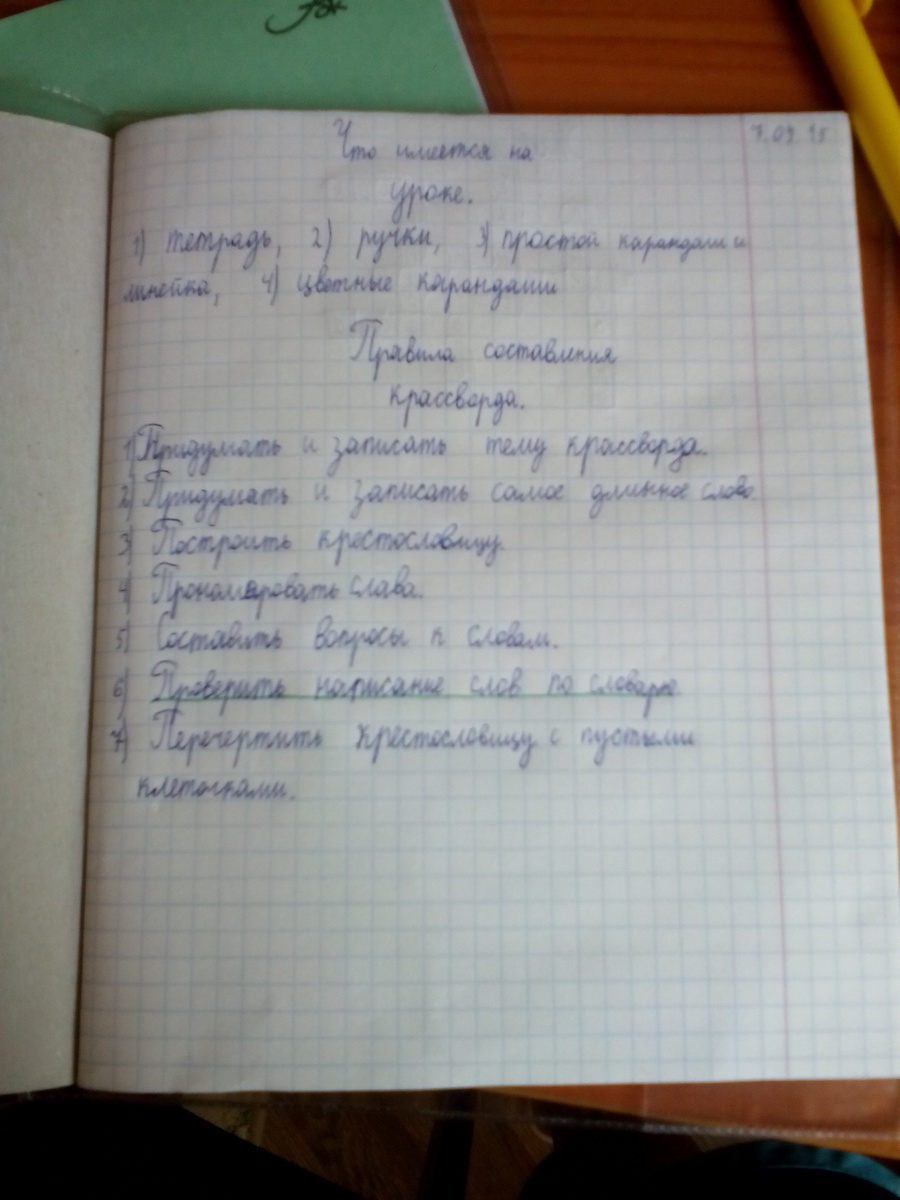 7.09.15
Что имеется на
уроке.
1) тетрадь, 2) ручки, 3) простой карандаш и
линейка, 4) цветные карандаши
Правила составления
крассворда.
1) Придумать и записать тему крассворда.
2) Придумать и записать самое длинное слово
3) Построить крестословицу.
4) слава.
5) Составить вопросы к словам.
6) Проверить написание слов по словарю
7) Перечертить крестословицу с пустыми
клеточками.